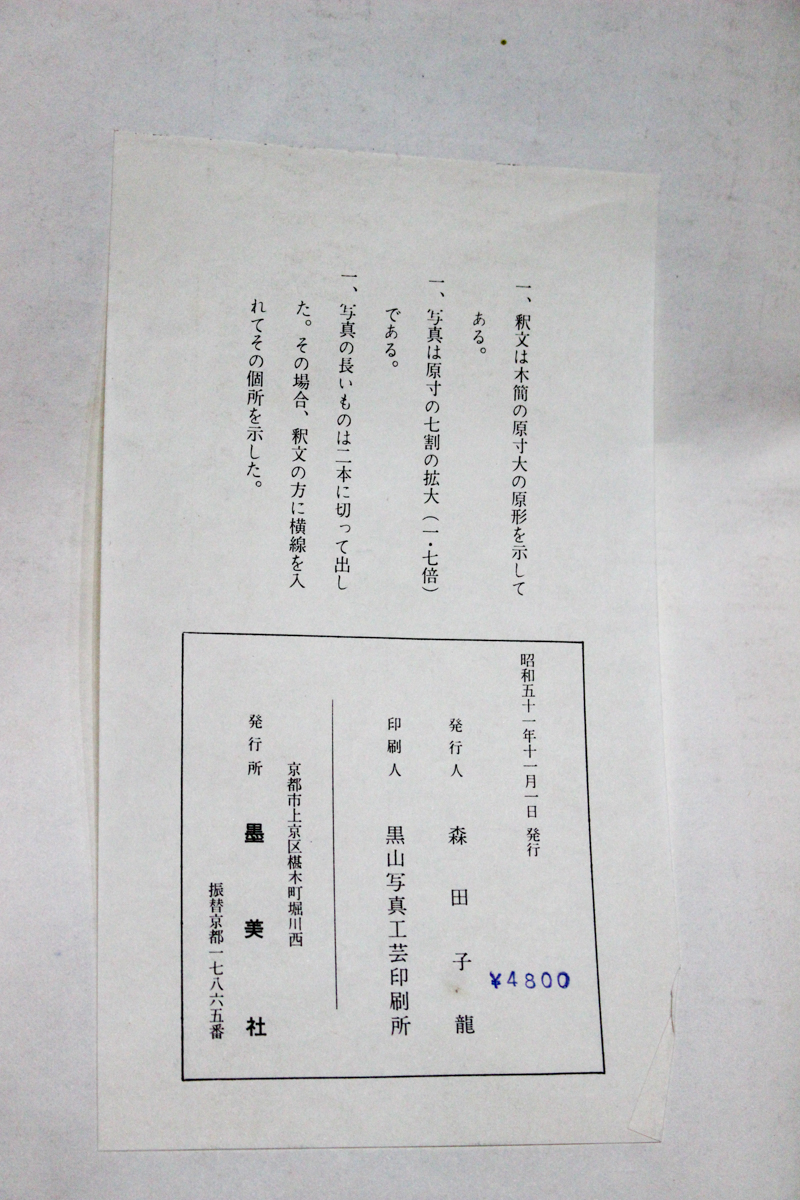 一、釈文は木簡の原寸大の原形を示して
ある。
一、写真は原寸の七割の拡大（一・七倍）
である。
一、写真の長いものは二本に切って出し
た。その場合、釈文の方に横線を入
れてその個所を示した。
昭和五十一年十一月一日 発行
¥4800
発行人 森田子龍
印刷人 黒山写真工芸印刷所
京都市上京区椹木町堀川西
発行所 墨美社
振替京都一七八六五番